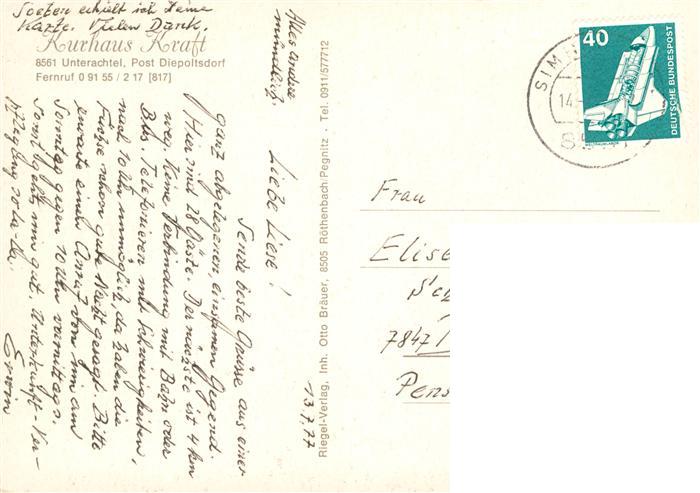 Soeben erhielt ich Deine
Karte. Vielen Dank.
Kurhaus Kraft
8561 Unterachtel, Post Diepoltsdorf
Fernruf 0 91 55 / 2 17 [817]
13.7.77
Liebe Liese!
Sende beste Grüsse aus einer
ganz abgelegenen, einsamen Gegend.
Hier sind 28 Gäste. Der nächste ist 4 km
weg. Keine Verbindung mit Bahn oder
Bus. Telefonieren mit Schwierigkeiten,
nach 10 Uhr unmöglich, da haben die
Frösche schon gute Nacht gesagt. Bitte
erwarte einen Anruf von mir am
Sonntag gegen 10 Uhr vormittags.
Sonst geht's mir gut. Unterkunft - Ver-
pflegung
Erwin
Alles andere
mündlich.
Riegel-Verlag, Inh. Otto Bräuer, 8505 Röthenbach/Pegnitz · Tel. 0911/577712
SIM
14.
40
DEUTSCHE BUNDESPOST
Frau
Elise
7847
Pens